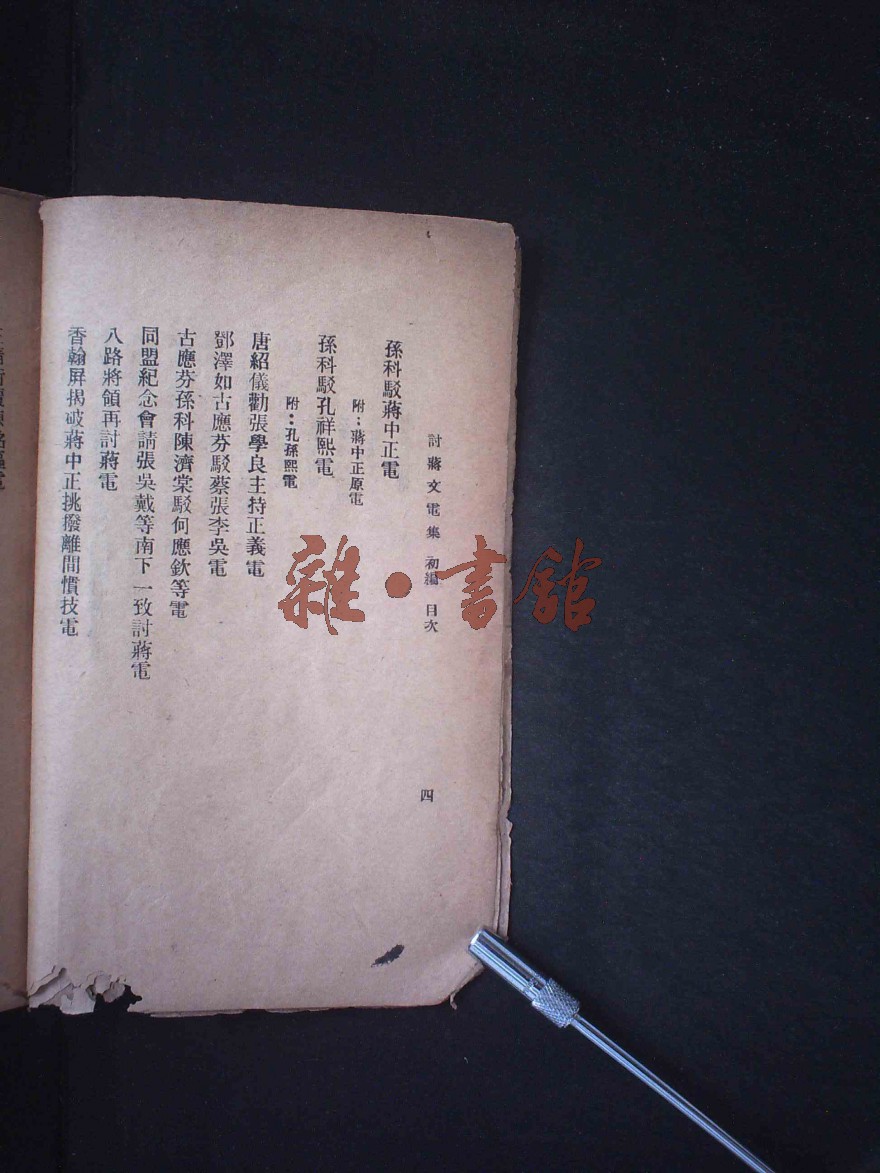 討蔣文電集 初編 目次 四
孫科駁蔣中正電
附：蔣中正原電
孫科駁孔祥熙電
附：孔孫熙電
唐紹儀勸張學良主持正義電
鄧澤如古應芬駁蔡張李吳電
古應芬孫科陳濟棠駁何應欽等電
同盟紀念會請張吳戴等南下一致討蔣電
八路將領再討蔣電
香翰屏揭破蔣中正挑撥離間慣技電
雜·書館